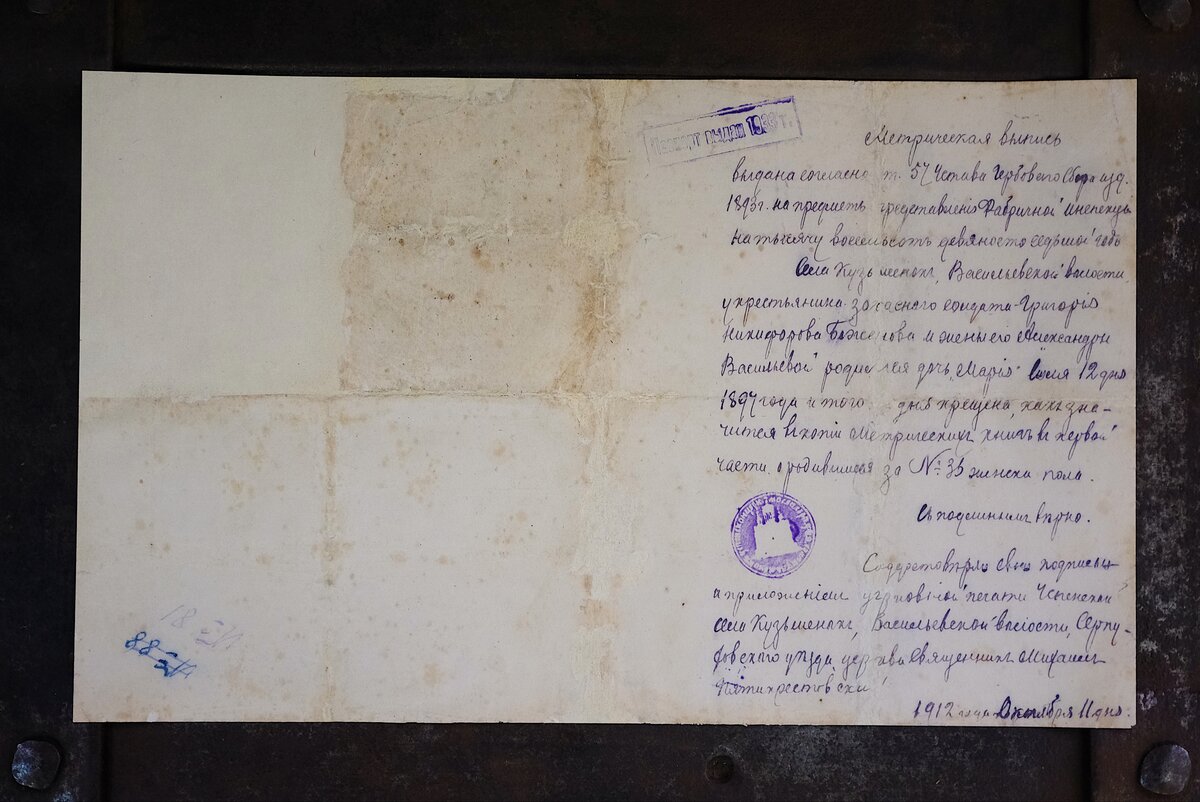 Паспорт выдан 1933 г.
Метрическая выпись
выдана согласно т. 57 Устава Гербового Сбора изд.
1893 г. на предметъ представленiя Фабричной Инспекцiи
на тысячу восемьсотъ девяносто седьмой годъ
Села Кузьменокъ, Васильевской волости
у крестьянина запаснаго солдата Григорiя
Никифорова и жены его Александры
Васильевой родилася дочь Марiя 12 дня
1897 года и того дня крещена, какъ зна-
чится въ копiи Метрическихъ книгъ въ первой
части, о родившихся за № 35 женска пола.
Съ подлиннымъ вѣрно.
подписью
и приложенiемъ церковной печати Успенской
села Кузьменокъ, Васильевской волости, Серпу-
ховского уѣзда церкви Священникъ Михаилъ
Пятикрестовскiй
1912 года Октября 11 дня.
№ 81
№ 88